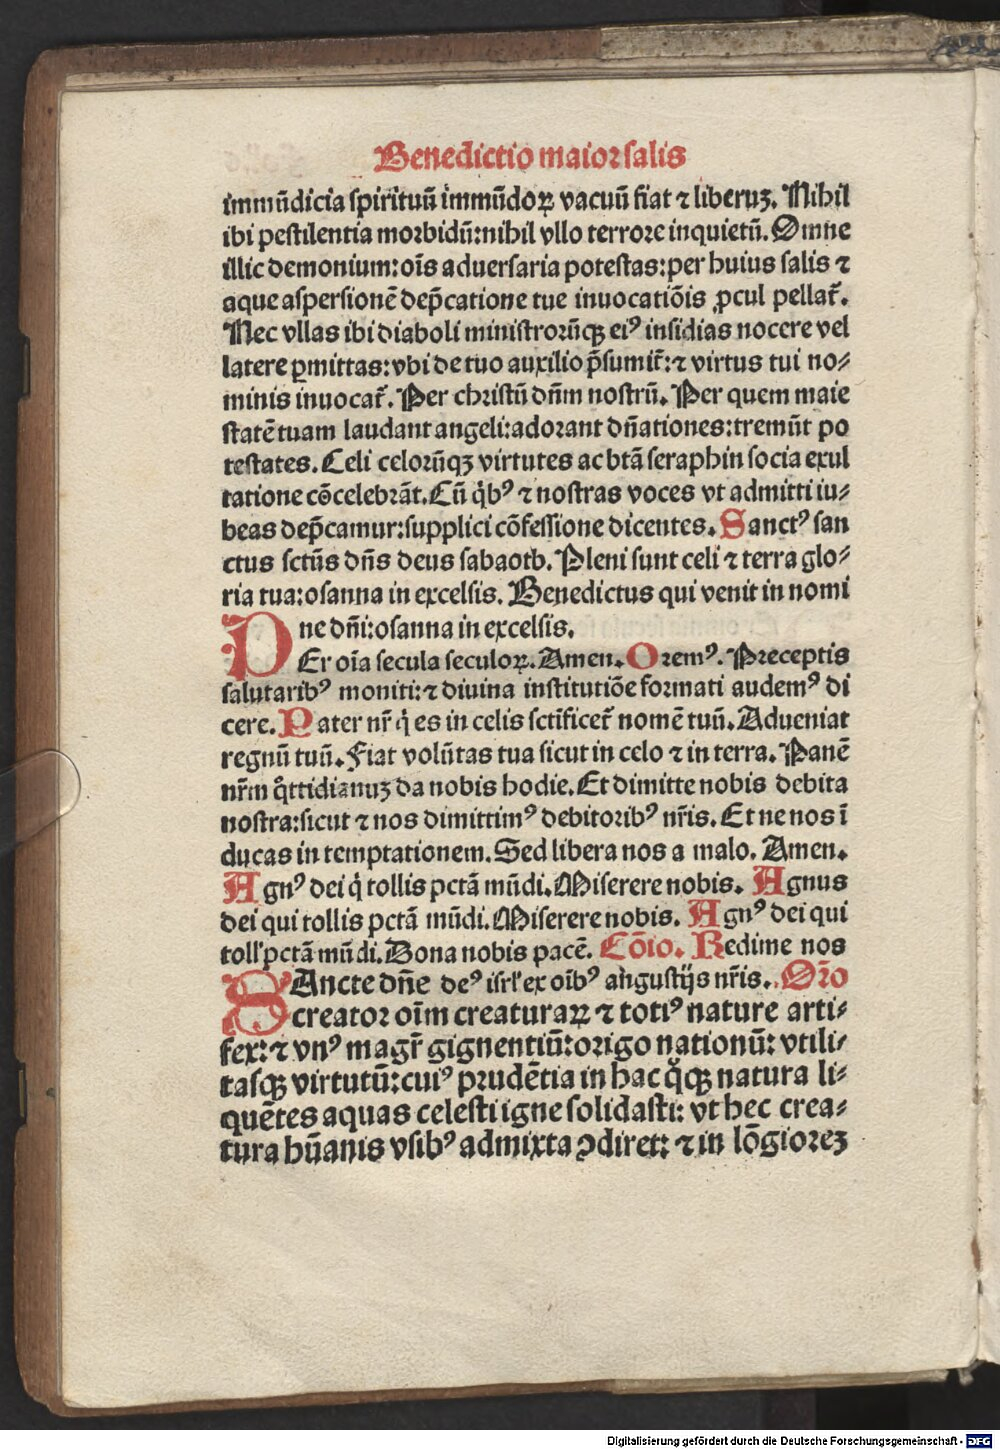 Benedictio maior salis
immũdicia spirituũ immũdoꝝ vacuũ fiat ⁊ liberuʒ. Nihil
ibi pestilentia morbidũ:nihil vllo terrore inquietũ. Omne
illic demonium:oĩs aduersaria potestas:per huius salis ⁊
aque aspersionẽ dep̃catione tue inuocatiõis ꝓcul pellat᷑.
Nec vllas ibi diaboli ministrorũqꝫ eiꝰ insidias nocere vel
latere ꝑmittas:vbi de tuo auxilio p̃sumit᷑:⁊ virtus tui no⸗
minis inuocat᷑. Per christũ dñm nostrũ. Per quem maie
statẽ tuam laudant angeli:adorant dñationes:tremũt po
testates. Celi celorũqꝫ virtutes ac btã seraphin socia exul
tatione cõcelebrãt. Cũ q̇bꝰ ⁊ nostras voces vt admitti iu⸗
beas dep̃camur:supplici cõfessione dicentes. Sanctꝰ san
ctus sctũs dñs deus sabaoth. Pleni sunt celi ⁊ terra glo⸗
ria tua:osanna in excelsis. Benedictus qui venit in nomi
ne dñi:osanna in excelsis.
PEr oĩa secula seculoꝝ. Amen. Oremꝰ. Preceptis
salutaribꝰ moniti:⁊ diuina institutiõe formati audemꝰ di
cere. Pater nr̃ q̇ es in celis sctificet᷑ nomẽ tuũ. Adueniat
regnũ tuũ. Fiat volũtas tua sicut in celo ⁊ in terra. Panẽ
nr̃m q̊ttidianuʒ da nobis hodie. Et dimitte nobis debita
nostra:sicut ⁊ nos dimittimꝰ debitoribꝰ nr̃is. Et ne nos ĩ
ducas in temptationem. Sed libera nos a malo. Amen.
Agnꝰ dei q̇ tollis pctã mũdi. Miserere nobis. Agnus
dei qui tollis pctã mũdi. Miserere nobis. Agnꝰ dei qui
toll' pctã mũdi. Dona nobis pacẽ. Cõio. Redime nos
SAncte dñe deꝰ isrl' ex oĩbꝰ angustijs nr̃is. Or̃o
creator oĩm creaturaꝝ ⁊ totiꝰ nature arti⸗
fex:⁊ vnꝰ magr̃ gignentiũ:origo nationũ: vtili⸗
tasqꝫ virtutũ:cuiꝰ prudẽtia in hac q̃qꝫ natura li⸗
quẽtes aquas celesti igne solidasti: vt hec crea⸗
tura hũanis vsibꝰ admixta ꝯdiret: ⁊ in lõgioreʒ
Digitalisierung gefördert durch die Deutsche Forschungsgemeinschaft - DFG